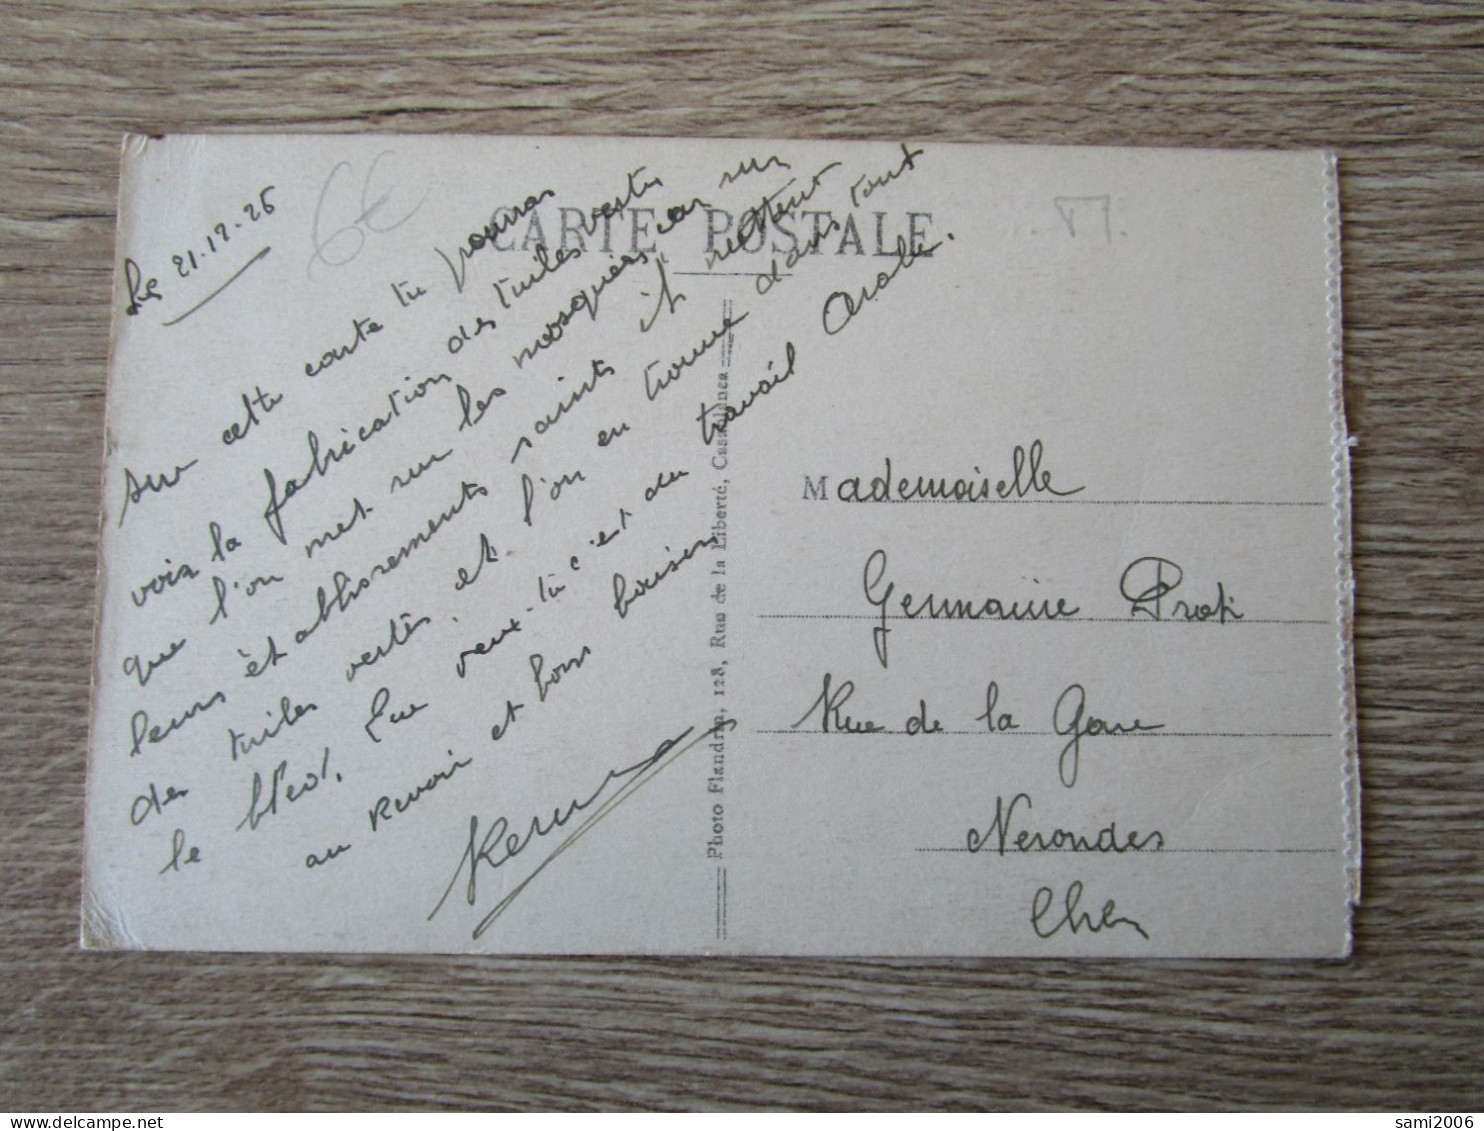 6€
CARTE POSTALE
Le 21.12.26
sur cette carte tu pourras
voir la fabrication des tuiles vertes
que l'on met sur les mosquiers car sur
leurs établissements saints il mettent
des tuiles vertes. et l'on en trouve dans tout
le bled. Que veux-tu c'est du travail Arabe.
au revoir et bons baisers
Photo Flandrin, 128, Rue de la Liberté, Casablanca
Mademoiselle
Germaine Prot
Rue de la Gare
Nerondes
Cher
sami2006